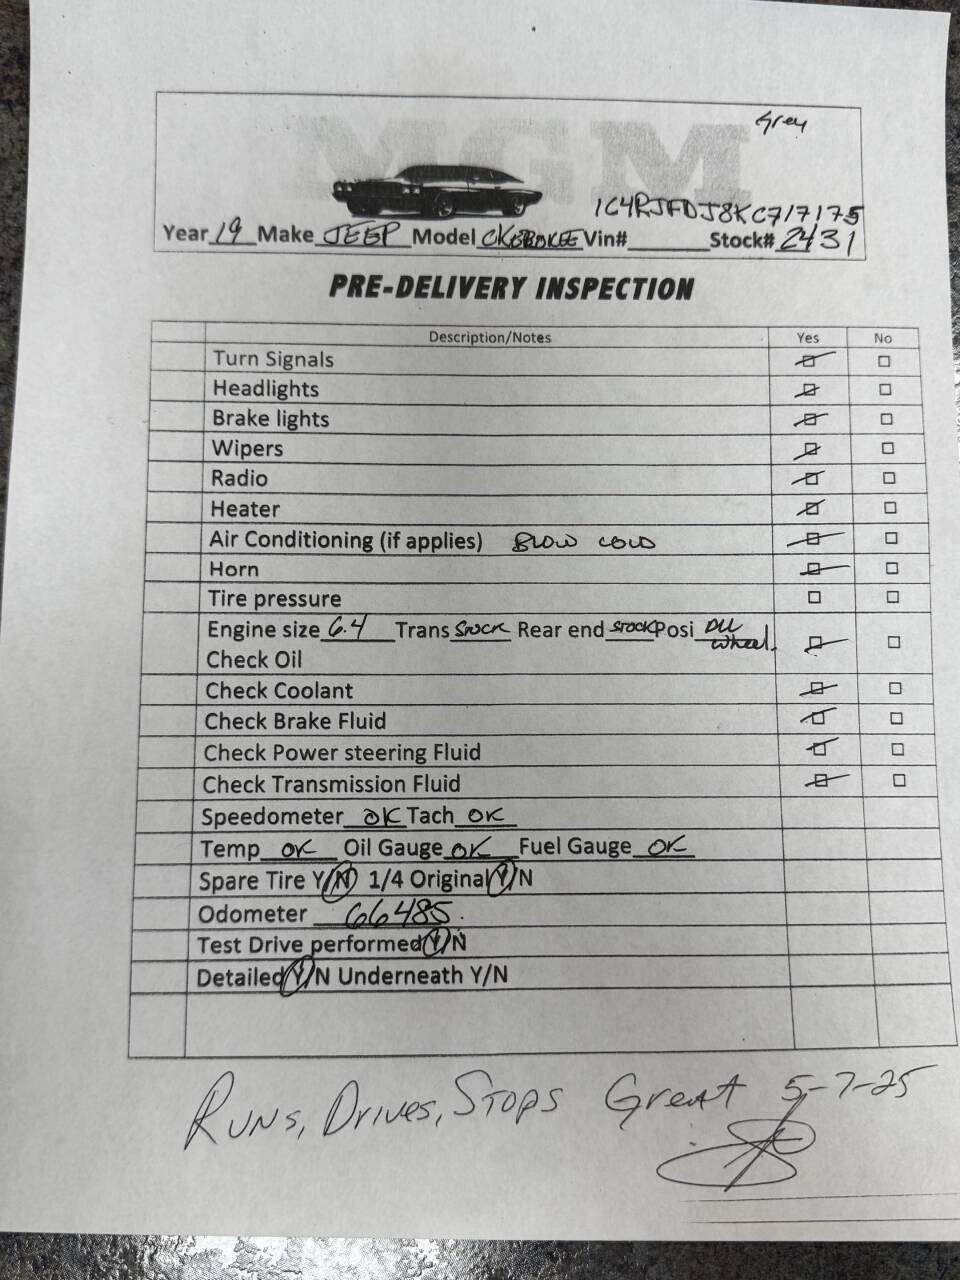 Grey
MGM
1C4RJFDJ8KC717175
Year 19 Make JEEP Model CKEROKEE Vin# Stock# 2431
PRE-DELIVERY INSPECTION
Description/Notes Yes No
Turn Signals
Headlights
Brake lights
Wipers
Radio
Heater
Air Conditioning (if applies) BLOW COLD
Horn
Tire pressure
Engine size 6.4 Trans STOCK Rear end STOCK Posi All wheel.
Check Oil
Check Coolant
Check Brake Fluid
Check Power steering Fluid
Check Transmission Fluid
Speedometer OK Tach OK
Temp OK Oil Gauge OK Fuel Gauge OK
Spare Tire Y/N 1/4 Original Y/N
Odometer 66485.
Test Drive performed Y/N
Detailed Y/N Underneath Y/N
Runs, Drives, Stops Great 5-7-25